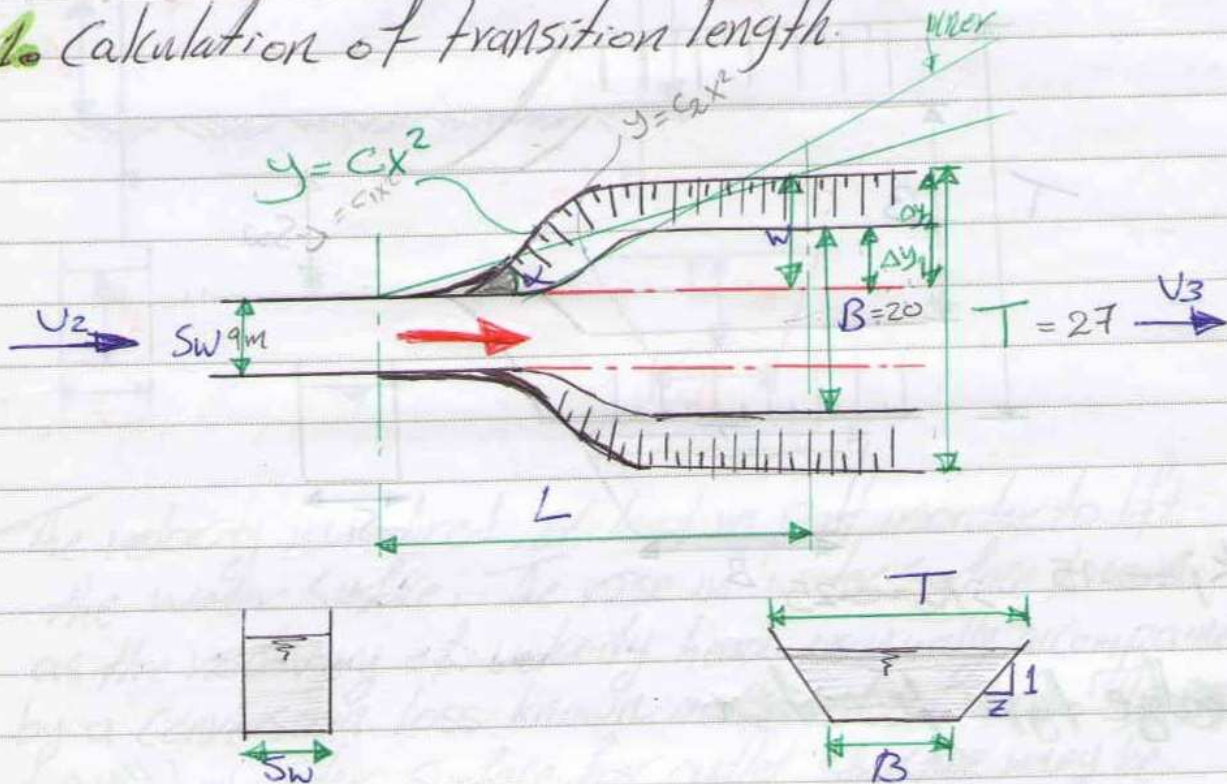 1. Calculation of transition length.
y = Cx²
y = C₂x²
= C₁x²
α
W
Δy₂
Δy₁
U2
Sw 9m
B=20
T = 27
U3
L
T
1
Z
Sw
B